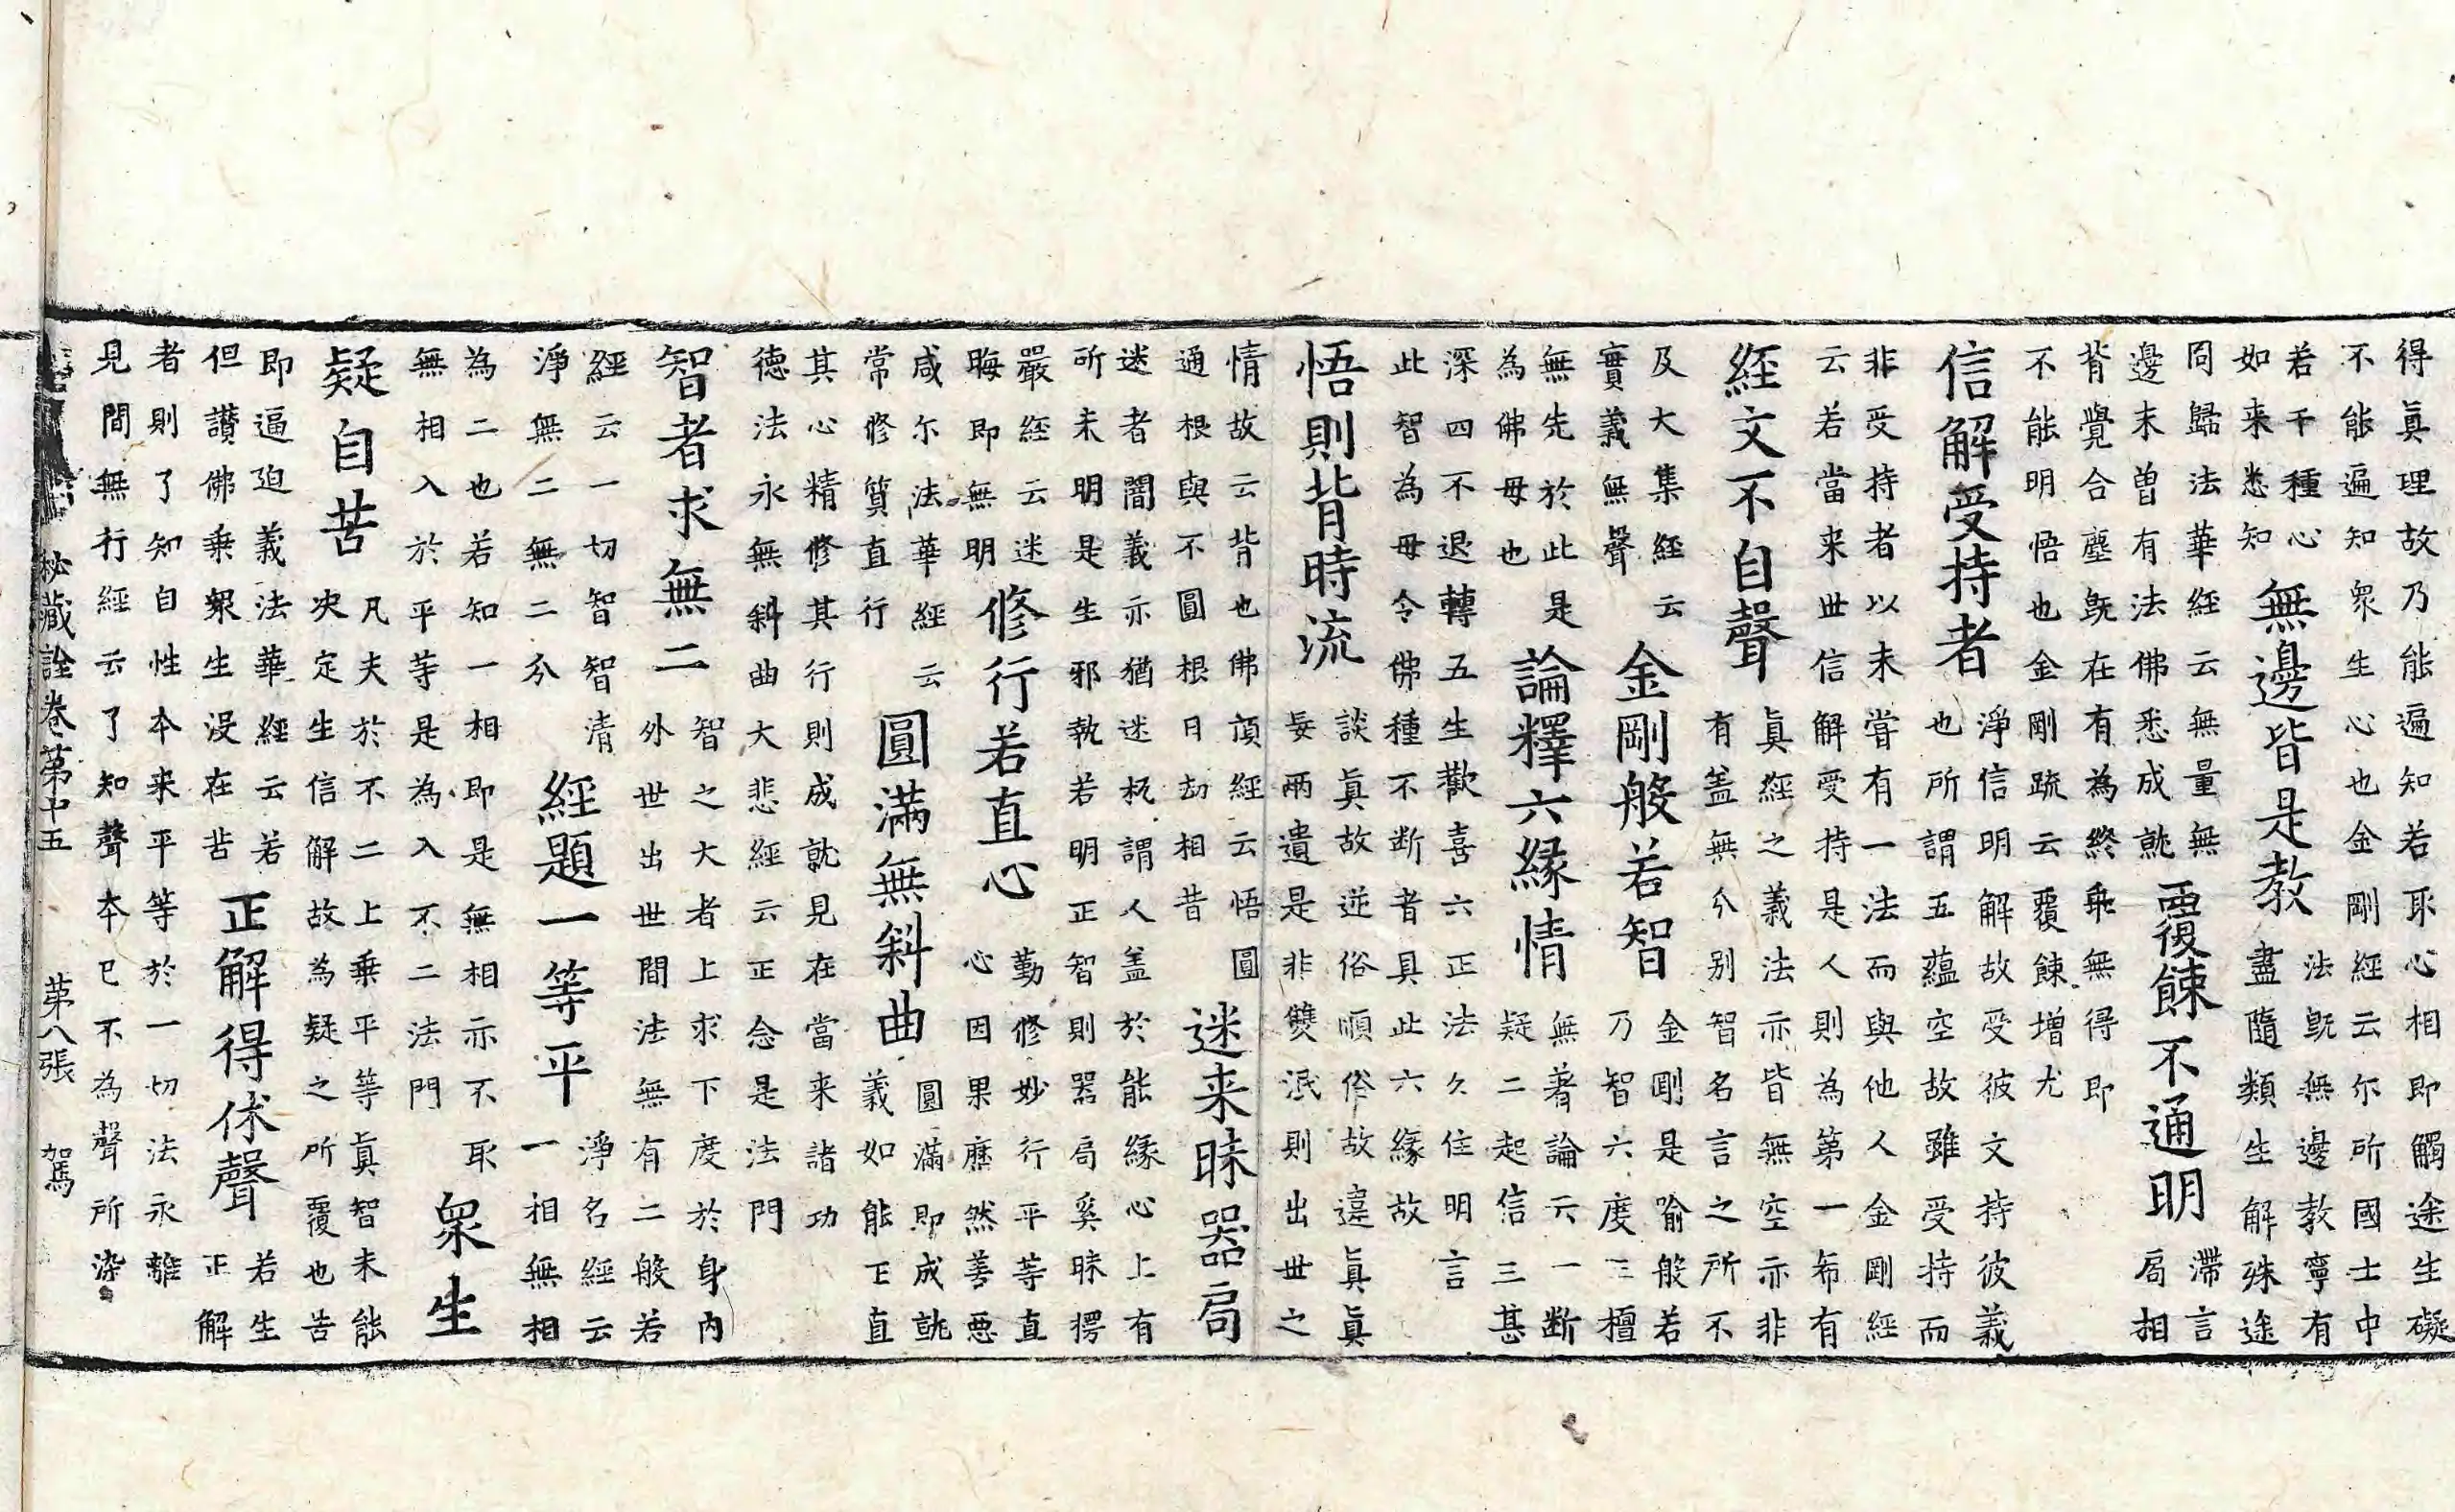 得眞理故乃能遍知若取心相即觸途生礙
不能遍知眾生心也金剛經云尒所國士中
若干種心
如来悉知
無邊皆是教
法旣無邊教寧有
盡隨類生解殊途
同歸法華經云無量無
邊未曾有法佛悉成就
覆餗不通明
滯言
局相
背覺合塵旣在有為終乖無得即
不能明悟也金剛疏云覆餗增尤
信解受持者
淨信明解故受彼文持彼義
也所謂五蘊空故雖受持而
非受持者以未甞有一法而與他人金剛經
云若當来世信解受持是人則為第一希有
經文不自聲
眞經之義法亦皆無空示非
有盖無分别智名言之所不
及大集經云
實義無聲
金剛般若智
金剛是喻般若
乃智六度三檀
無先於此是
為佛母也
論釋六緣情
無著論云一断
疑二起信三甚
深四不退轉五生歡喜六正法久住明言
此智為母令佛種不断者具此六緣故
悟則背時流
談眞故逆俗順俗故違眞眞
妄兩遣是非雙泯則出世之
情故云背也佛頂經云悟圓
通根與不圓根日劫相昔
迷来昧器局
迷者闇義亦猶迷杌謂人盖於能緣心上有
所未明是生邪執若明正智則器局奚昧愕
嚴經云迷
晦即無明
修行若直心
勤修妙行平等直
心因果歷然善惡
咸尒法華經云
常修質直行
圓滿無斜曲
圓滿即成就
義如能正直
其心精修其行則成就見在當来諸功
德法永無斜曲大悲經云正念是法門
智者求無二
智之大者上求下度於身内
外世出世間法無有二般若
經云一切智智清
淨無二無二分
經題一等平
淨名經云
一相無相
為二也若知一相即是無相亦不取
無相入於平等是為入不二法門
眾生
疑自苦
凡夫於不二上乘平等眞智未能
决定生信解故為疑之所覆也苦
即逼迫義法華經云若
但讚佛乘眾生没在苦
正解得休聲
若生
正解
者則了知自性本来平等於一切法永離
見聞無行經云了知聲本已不為聲所染
秘藏詮卷第十五 第八張 駕